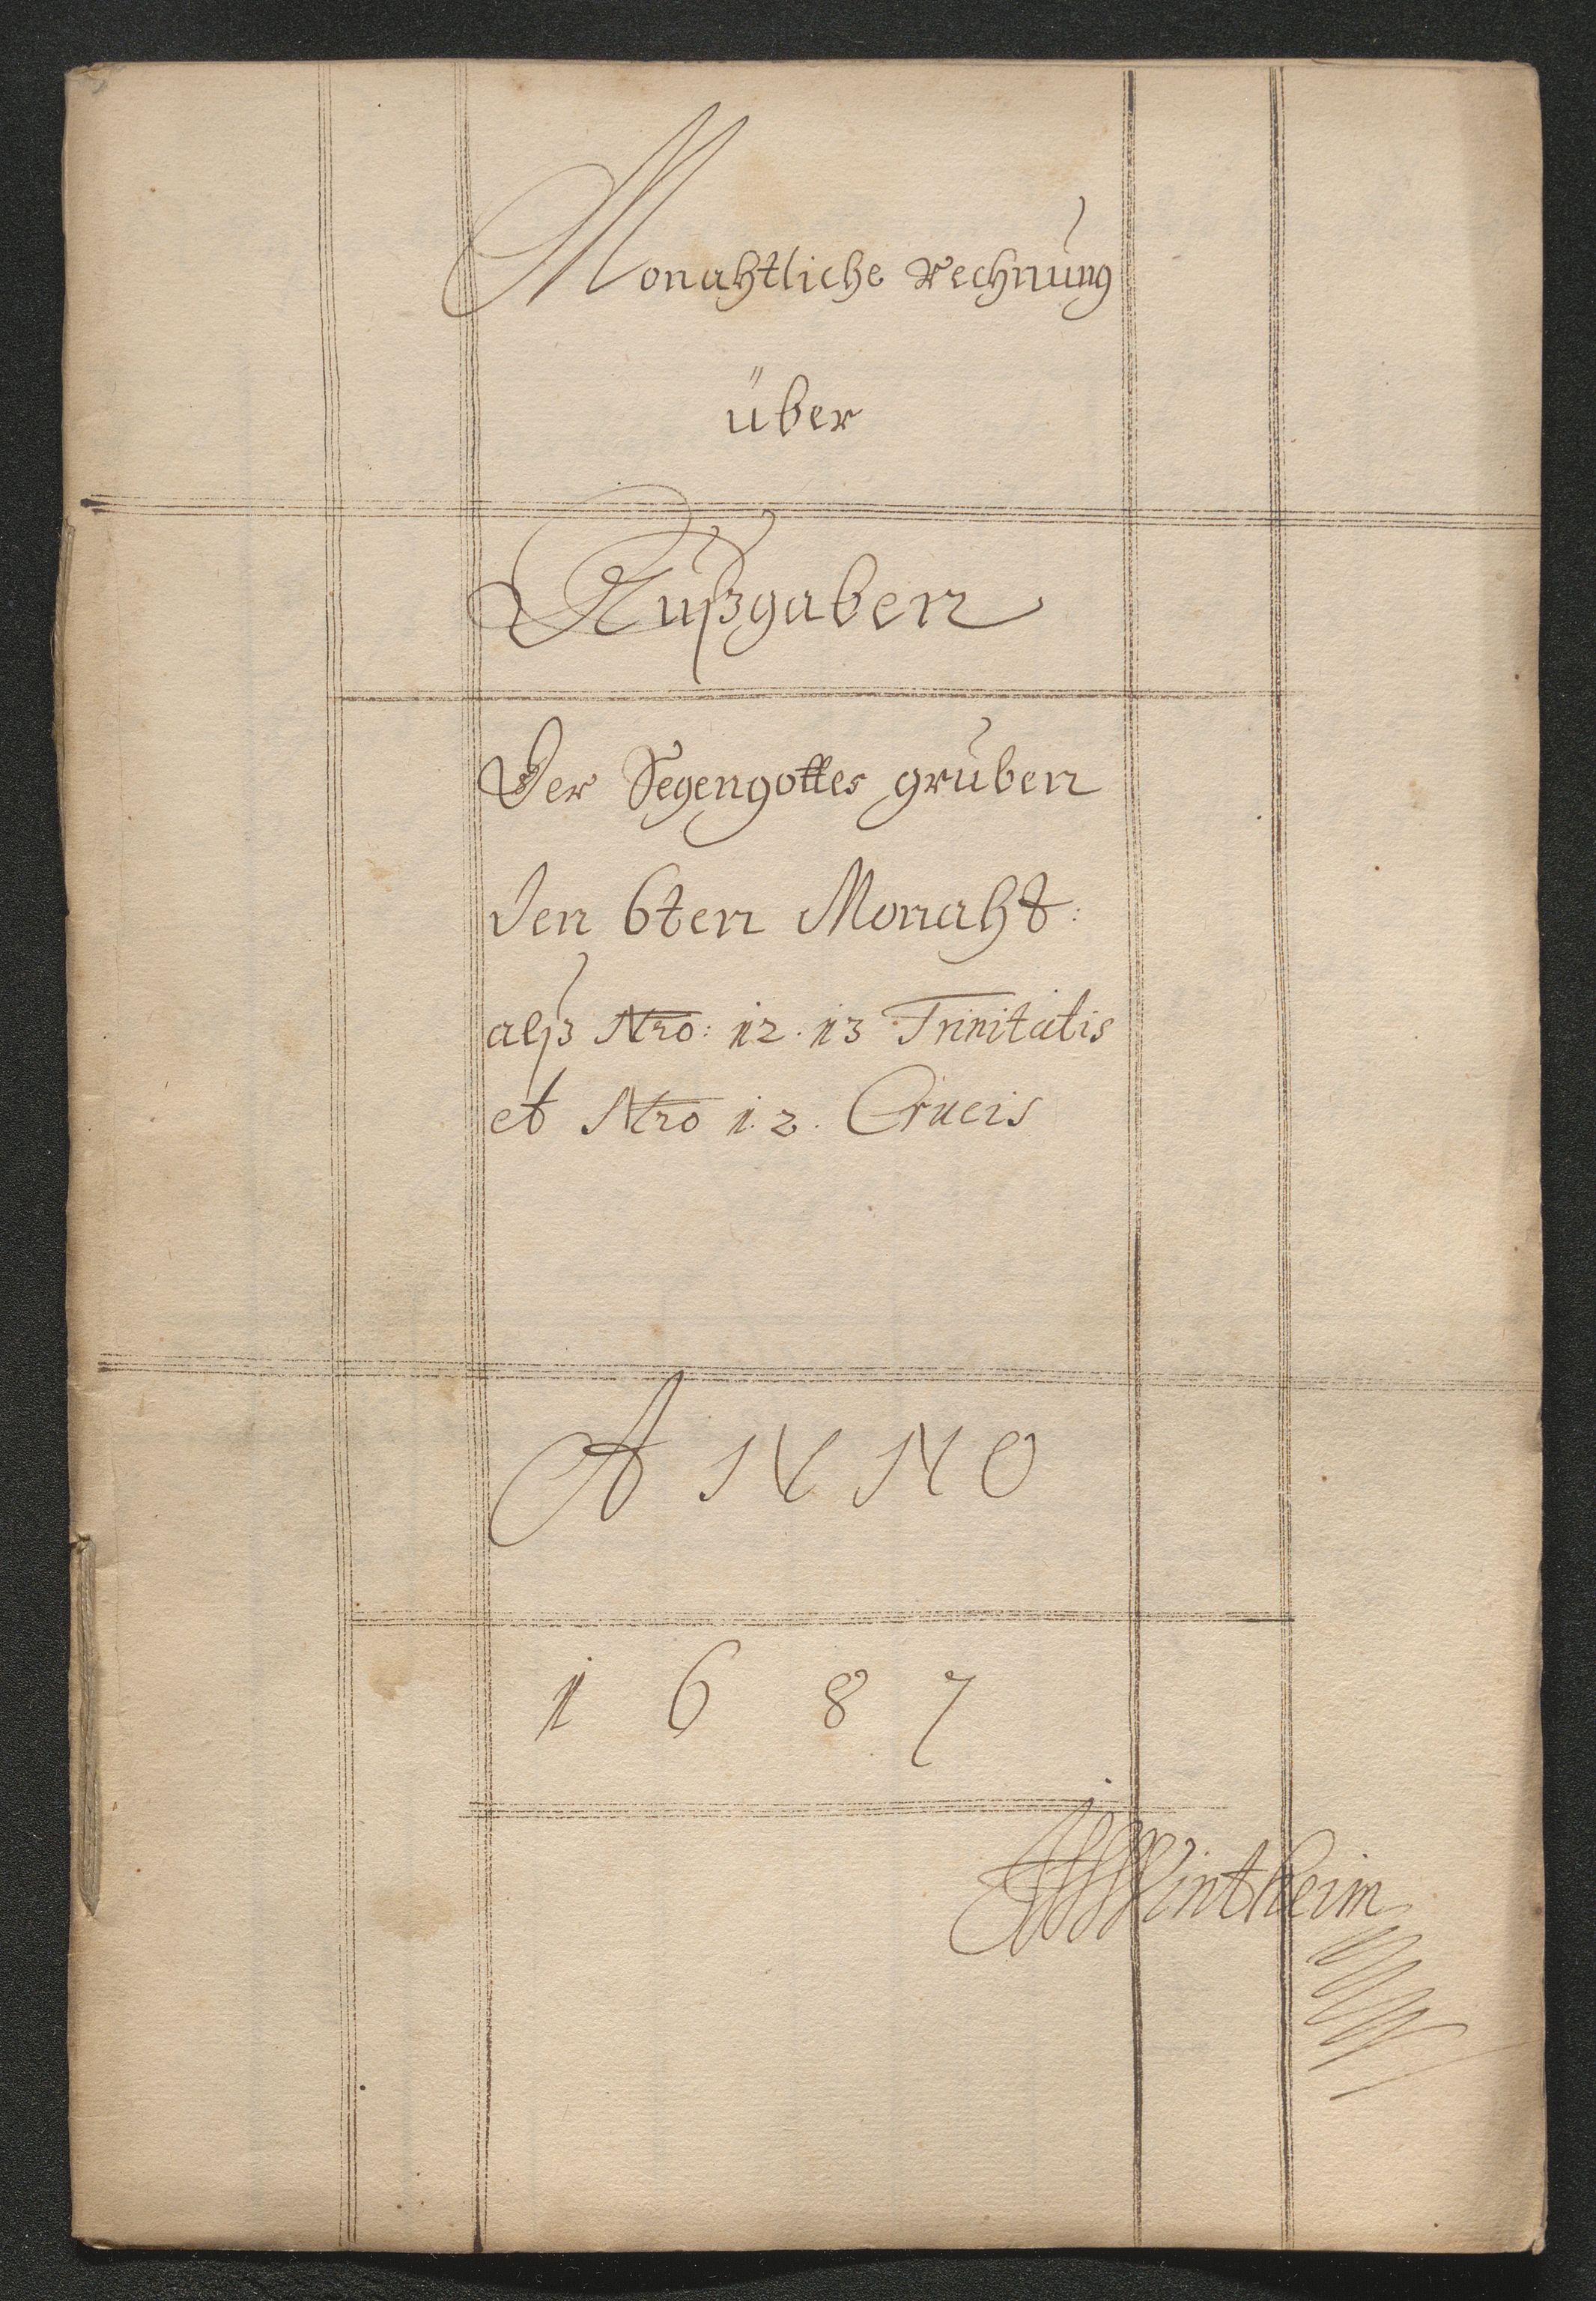 Monahtliche rechnung
über
Außgaben
Der Segengottes gruben
den 6ten Monaht:
alß Nro: 12. 13 Trinitatis
et Nro 1. 2. Crucis
ANNO
1687
Wintheim